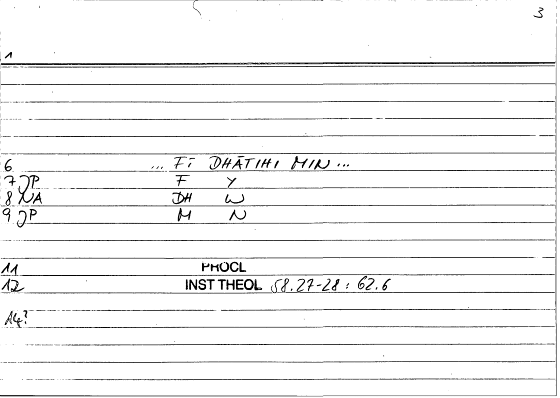 3
1
6 ... FĪ DHĀTIHI MIN ...
7 JP F Y
8 NA DH W
9 JP M N
11 PROCL
12 INST THEOL 58.27-28 : 62.6